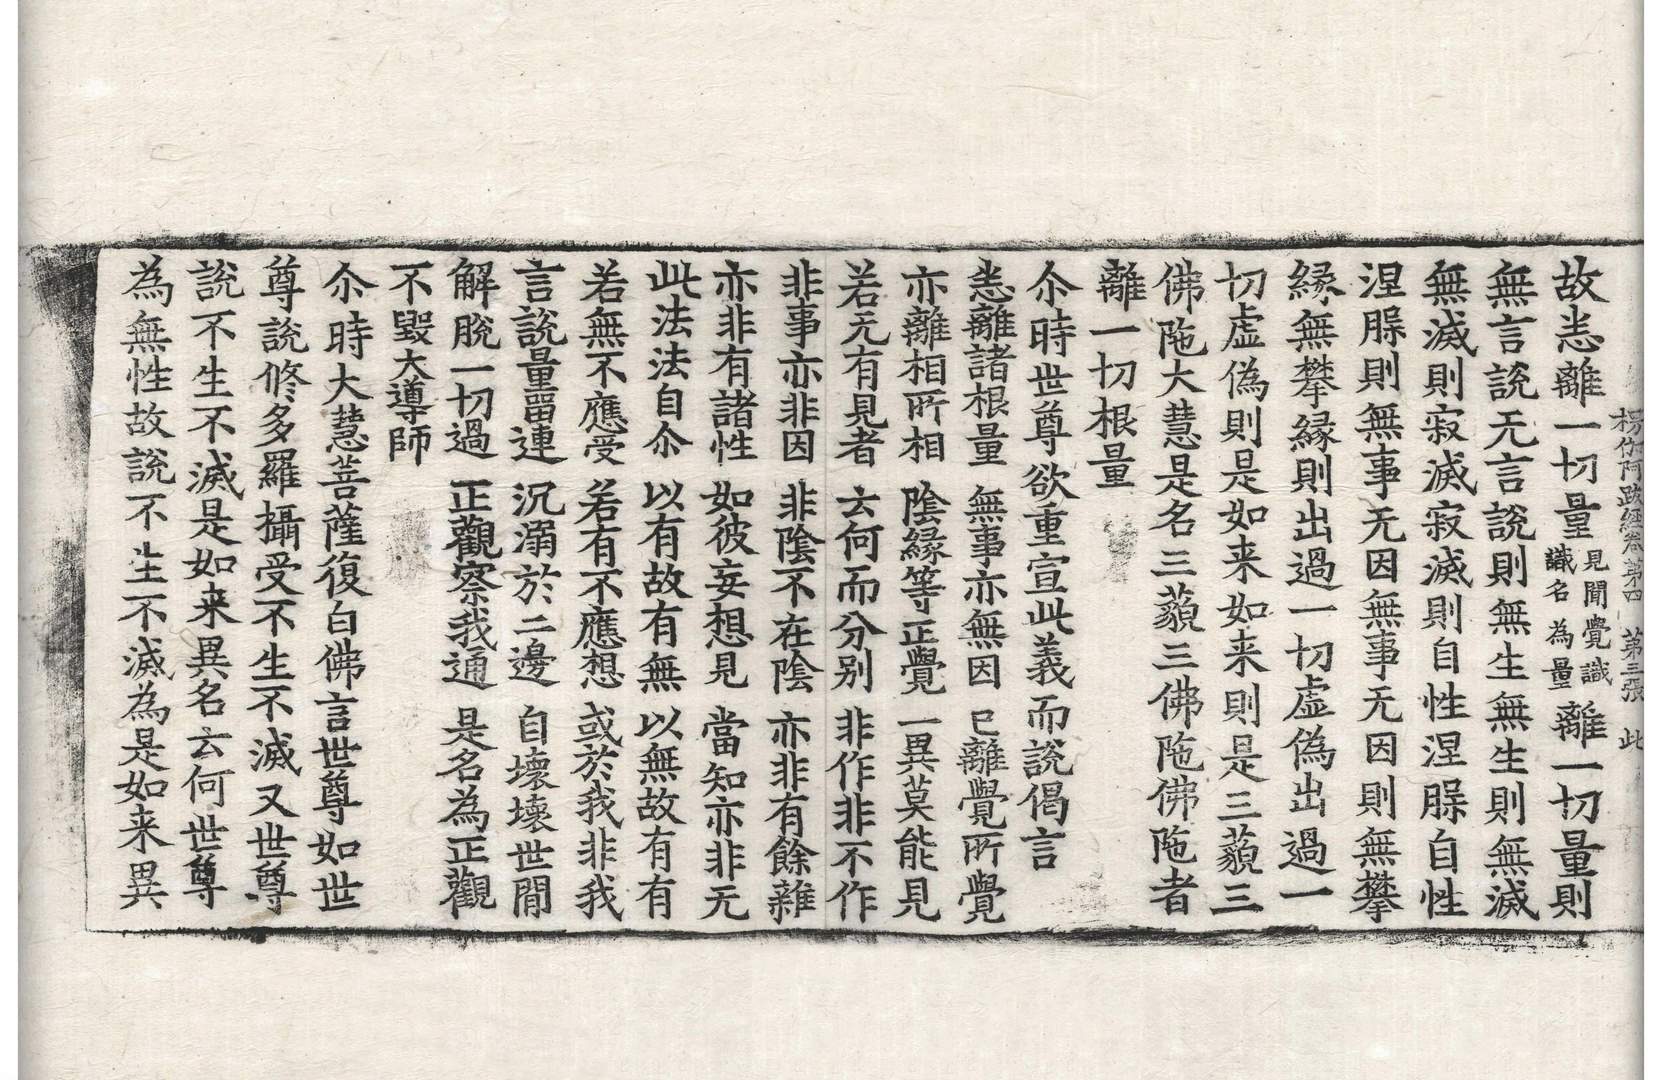 楞伽阿跋經卷第四　第三張　此
故恙離一切量見聞覺識識名為量離一切量則
無言說无言說則無生無生則無滅
無滅則寂滅寂滅則自性涅脲自性
涅脲則無事无因無事无因則無攀
緣無攀緣則出過一切虛偽出過一
切虛偽則是如来如来則是三藐三
佛陁大慧是名三藐三佛陁佛陁者
離一切根量
尒時世尊欲重宣此義而說偈言
恙離諸根量　無事亦無因　已離覺所覺
亦離相所相　陰緣等正覺　一異莫能見
若无有見者　云何而分別　非作非不作
非事亦非因　非陰不在陰　亦非有餘雜
亦非有諸性　如彼妄想見　當知亦非无
此法法自尒　以有故有無　以無故有有
若無不應受　若有不應想　或於我非我
言說量畱連　沉溺於二邊　自壞壞世間
解脫一切過　正觀察我通　是名為正觀
不毀大導師
尒時大慧菩薩復白佛言世尊如世
尊說修多羅攝受不生不滅又世尊
說不生不滅是如来異名云何世尊
為無性故說不生不滅為是如来異